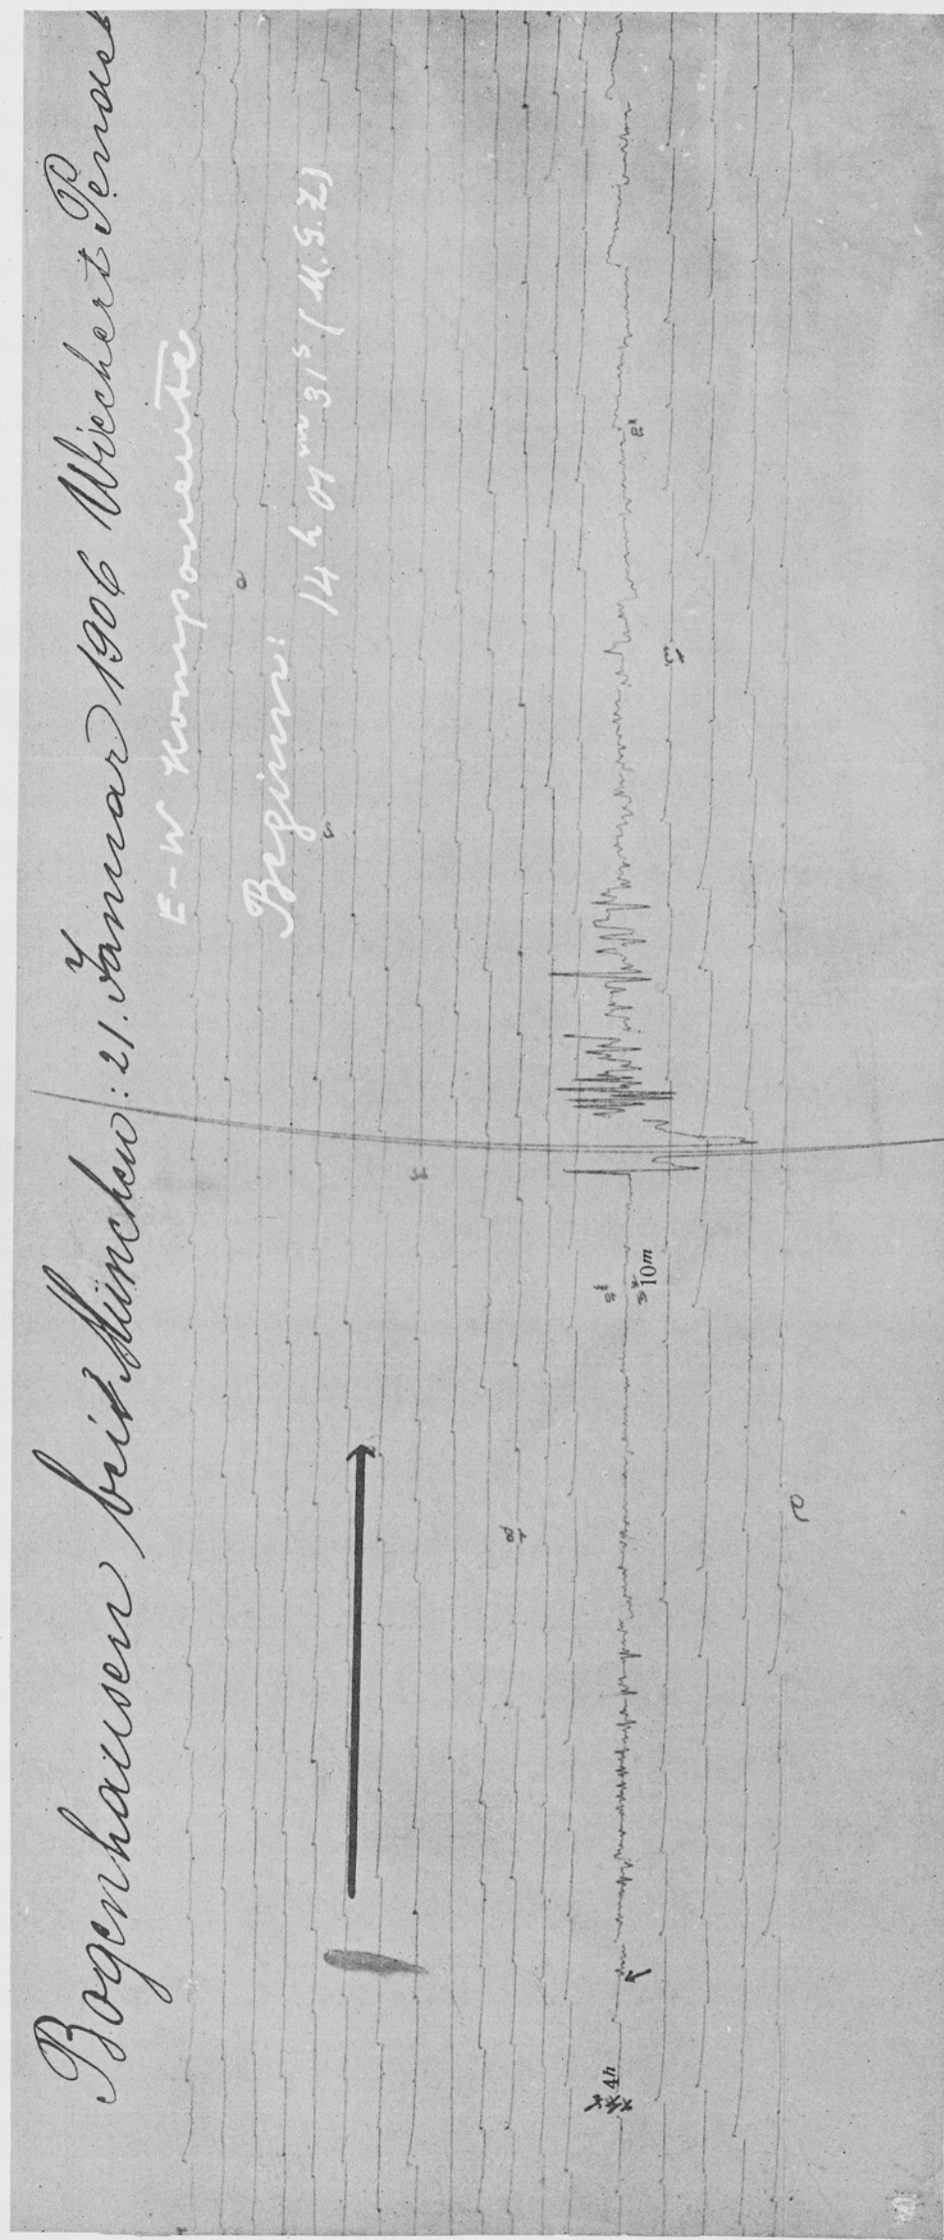 Bogenhausen bei München: 21. Januar 1906 Wiechert Pendel
E-W Komponente
Beginn:
14 h 01 m 31 s (M.G.Z)
4h
10m